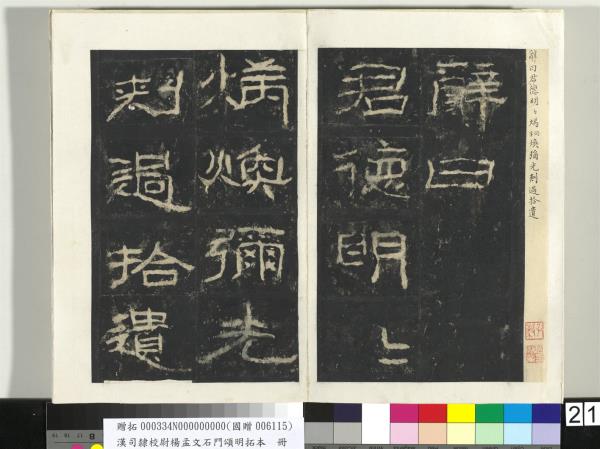 辭曰君德明〻焫同煥彌光刺過拾遺
辭曰
君德明〻
焫煥彌光
刺過拾遺
贈拓 000334N000000000(國贈 006115)
漢司隸校尉楊孟文石門頌明拓本 冊
21
8